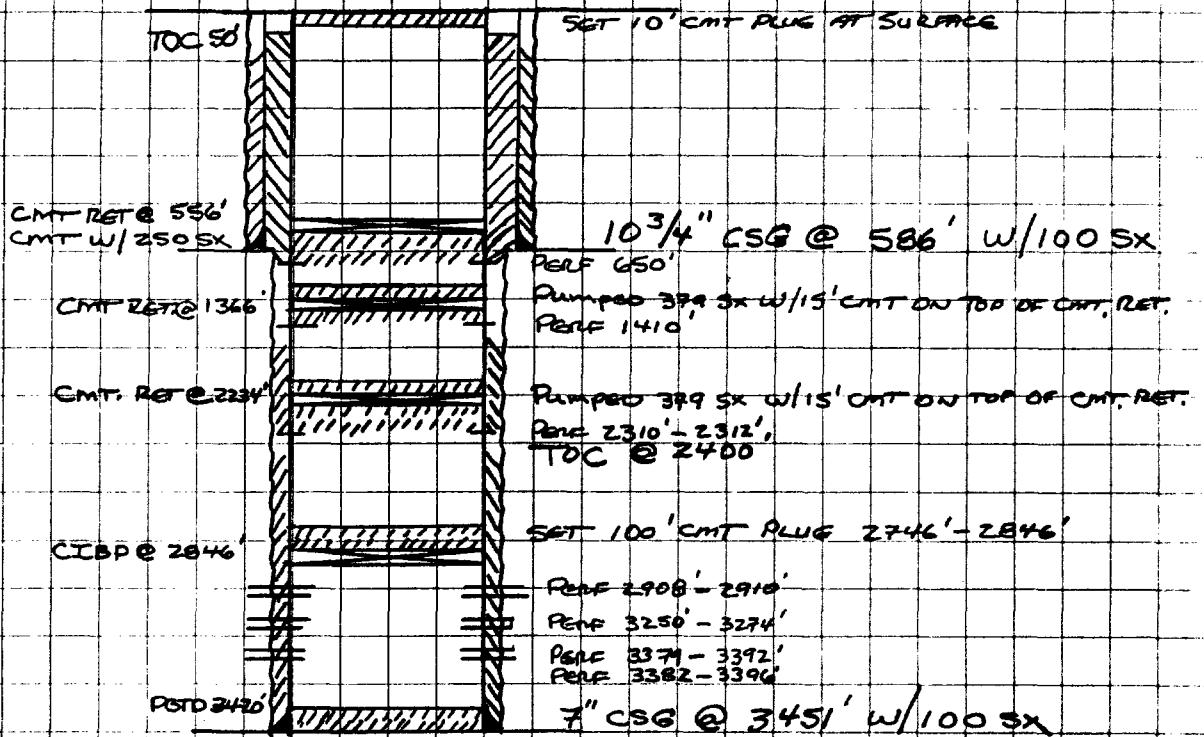 SET 10' CMT PLUG AT SURFACE
TOC 50'
CMT RET @ 556'
CMT W/ 250 SX
10 3/4" CSG @ 586' W/100 SX
PERF 650'
CMT RET @ 1366'
PUMPED 379 SX W/15' CMT ON TOP OF CMT. RET.
PERF 1410'
CMT. RET @ 2234'
PUMPED 379 SX W/15' CMT ON TOP OF CMT. RET.
PERF 2310'-2312'
TOC @ 2400
SET 100' CMT PLUG 2746'-2846'
CIBP @ 2846'
PERF 2908'-2910'
PERF 3250'-3274'
PERF 3379-3392'
PERF 3382-3396'
PBTD 3420'
7" CSG @ 3451' W/100 SX